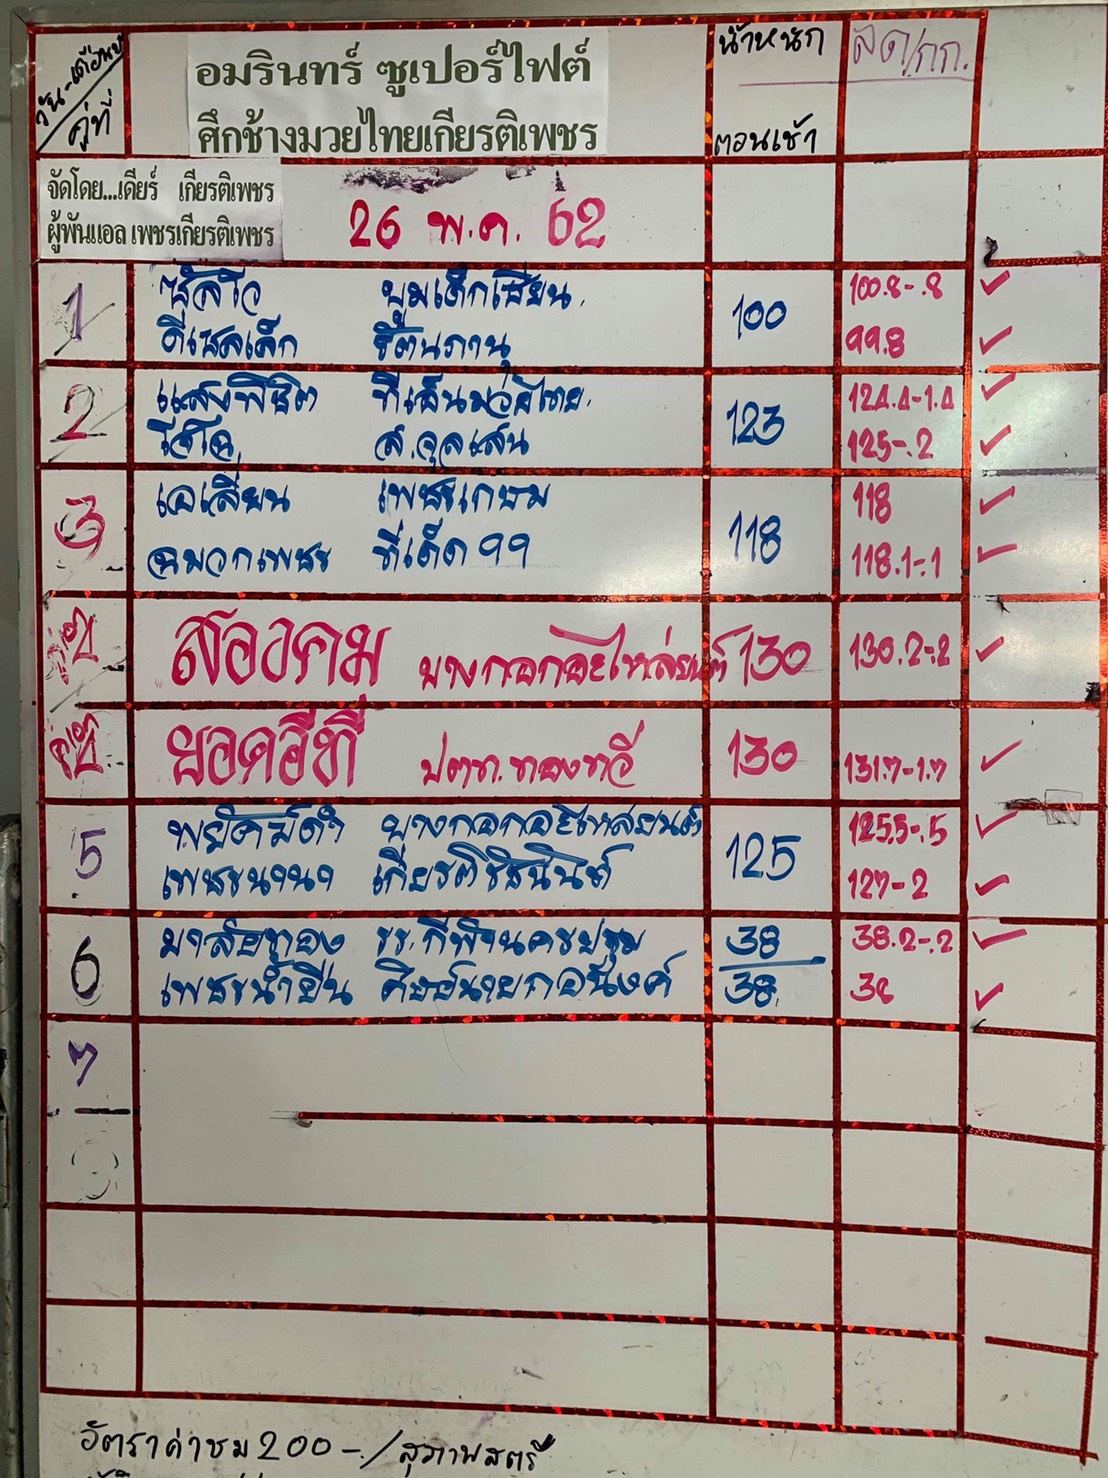 วัน-เดือน-ปี
คู่ที่
อมรินทร์ ซูเปอร์ไฟต์
ศึกช้างมวยไทยเกียรติเพชร
น้ำหนัก
ตอนเช้า
ลด/กก.
จัดโดย...เดียร์ เกียรติเพชร
ผู้พันแอล เพชรเกียรติเพชร
26 พ.ค. 62
1 พูมเด็กเซียน 100 100.8-.8
ดีเซลเล็ก รัตนภานุ 99.8
2 แสงพิชิต ทีเด็นมวยไทย 123 124.4-1.4
โชโค ส.จุลเสน 125-.2
3 เอเลี่ยน เพชรเกษม 118 118
ฉมวกเพชร ทีเด็ด99 118.1-.1
คู่เอก สองคม บางกอกอะไหล่ยนต์ 130 130.2-.2
ยอดอีที ปตท.ทองทวี 130 131.7-1.7
5 พยัคฆ์ดำ บางกอกอะไหล่ยนต์ 125 125.5-.5
เพชรนานา เกียรติรัชนันต์ 127-2
6 มาลัยทอง รร.กีฬานครปฐม 38 38.2-.2
เพชรน้ำยืน ศิษย์นายกอนงค์ 38 38
7
อัตราค่าชม 200-/สุภาพสตรี